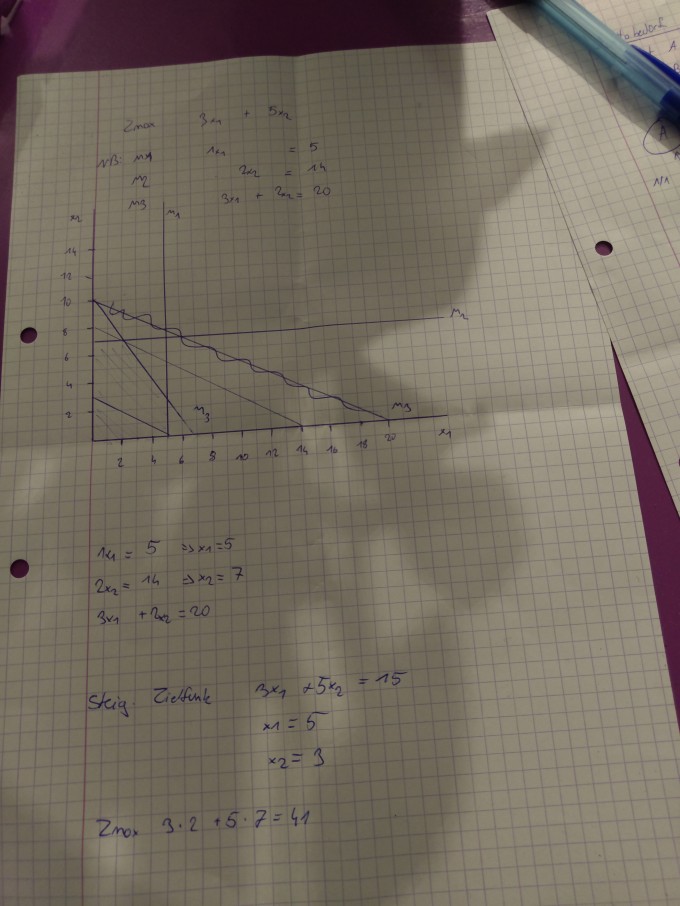 Zmax 3x1 + 5x2
NB: M1 1x1 = 5
M2 2x2 = 14
M3 3x1 + 2x2 = 20
x2
M1
14
12
10
8
6
4
2
M2
M3
M3
2 4 6 8 10 12 14 16 18 20 x1
1x1 = 5 => x1 = 5
2x2 = 14 => x2 = 7
3x1 + 2x2 = 20
Steig. Zielfunk 3x1 + 5x2 = 15
x1 = 5
x2 = 3
Zmax 3 · 2 + 5 · 7 = 41
A
A